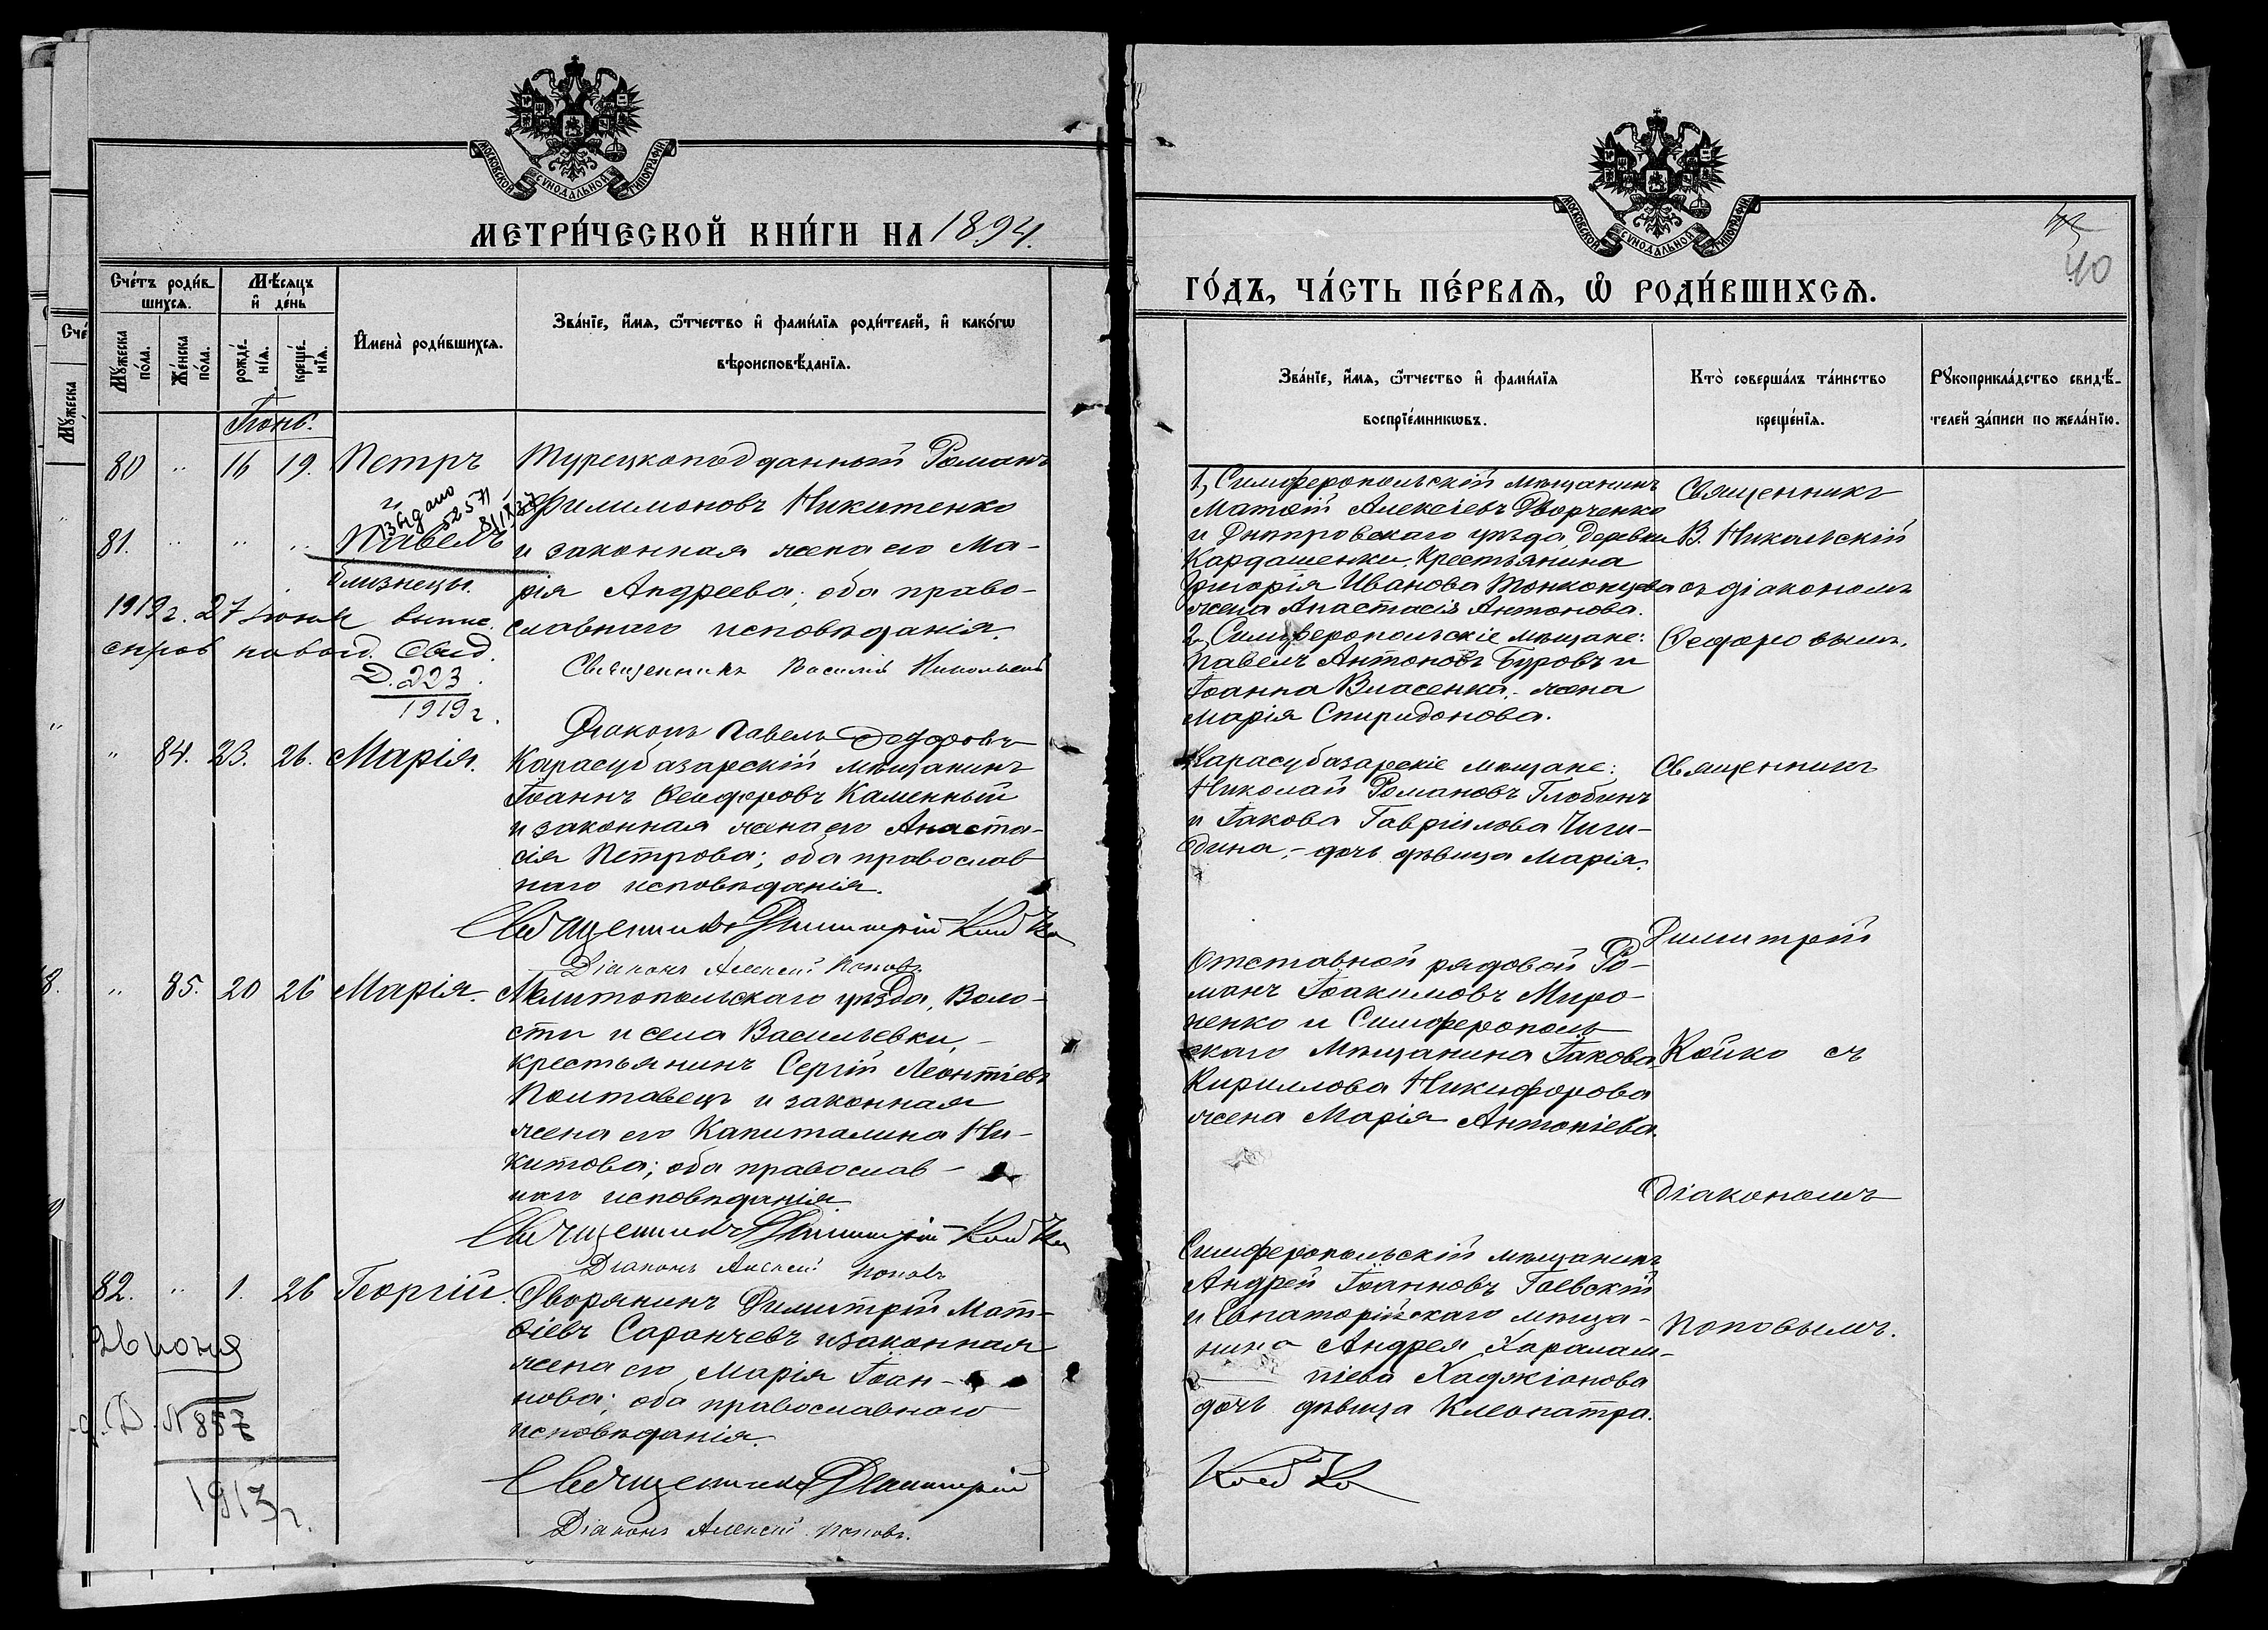 МОСКОВСКОЙ СѴНОДАЛЬНОЙ ТИПОГРАФІИ
МЕТРИ́ЧЕСКОЙ КНИ́ГИ НА 1894.
Сче́тъ роди́в
шихсѧ.
Мѣ́сѧцъ
и҆ де́нь
Мꙋ́жеска
по́ла.
Же́нска
по́ла.
рожде́-
нїѧ.
креще́-
нїѧ.
И҆мена̀ роди́вшихсѧ.
Зва́нїе, и҆́мѧ, ѻ҆́тчество и҆ фами́лїѧ роди́телей, и҆ како́гѡ
вѣроисповѣ́данїѧ.
Іюнь.
80 " 16 19. Петръ
и
Выдано
52571
81. " " " Павелъ
близнецы.
1919 г. 27 іюня выпис.
справ на воєд. Свид.
Д. 223
1919 г.
Турецкоподданный Романъ
Филимоновъ Никитенко
и законная жена его Ма-
рія Андреева; оба право-
славнаго исповѣданія.
Священникъ Василій Никольскій
Діаконъ Павелъ Федоровъ
" 84. 23. 26. Марія.
Карасубазарскій мѣщанинъ
Іоаннъ Ѳеодоровъ Каменный
и законная жена его Анаста-
сія Петрова; оба православ
наго исповѣданія.
Священникъ Димитрій Койко
Діаконъ Алексѣй Поповъ
" 85. 20 26 Марія.
Мелитопольскаго уѣзда, Воло-
сти и села Васильевки, -
крестьянинъ Сергій Леонтіевъ
Полтавецъ и законная
жена его Капиталина Ни-
китова; оба православ-
наго исповѣданія
Священникъ Димитрій Койко
Діаконъ Алексѣй Поповъ
82. " 1. 26 Георгій.
Дворянинъ Димитрій Мат-
ѳіевъ Саранчевъ и законная
жена его Марія Іоан-
нова; оба православнаго
исповѣданія.
Священникъ Димитрій
Діаконъ Алексѣй Поповъ.
26 июня
Д. № 857
1913 г.
МОСКОВСКОЙ СѴНОДАЛЬНОЙ ТИПОГРАФІИ
40
ГО́ДЪ, ЧА́СТЬ ПЕ́РВАѦ, Ѽ РОДИ́ВШИХСѦ.
Зва́нїе, и҆́мѧ, ѻ҆́тчество и҆ фами́лїѧ
воспрїе́мникѡвъ.
Кто̀ соверша́лъ та́инство
креще́нїѧ.
Рꙋкоприкла́дство свидѣ́-
телей за́писи по жела́нїю.
1, Симферопольскій мѣщанинъ
Матѳій Алексіевъ Дворченко
и Днѣпровскаго уѣзда, деревни
Кардашенки, Крестьянина
Григорія Иванова Тонконцева
жена Анастасія Антонова.
2, Симферопольскіе мѣщане:
Павелъ Антоновъ Буровъ и
Іоанна Власенка, жена
Марія Спиридонова.
Священникъ
В. Никольскій
съ діакономъ
Ѳедоровымъ.
Карасубазарскіе мѣщане:
Николай Романовъ Глобинъ
и Іакова Гавріилова Чиги-
дина, - дочь дѣвица Марія.
Священникъ
Димитрій
Койко съ
Діакономъ
Поповымъ.
Отставной рядовой Ро-
манъ Іоакимовъ Миро-
ненко и Симферополь
скаго Мѣщанина Іакова
Кириллова Никифорова
жена Марія Антоніева.
Симферопольскій мѣщанинъ
Андрей Іоанновъ Гаевскій
и Евпаторійскаго мѣща-
нина Андрея Харалам-
піева Хаджіонова
дочь дѣвица Клеопатра.
Койко